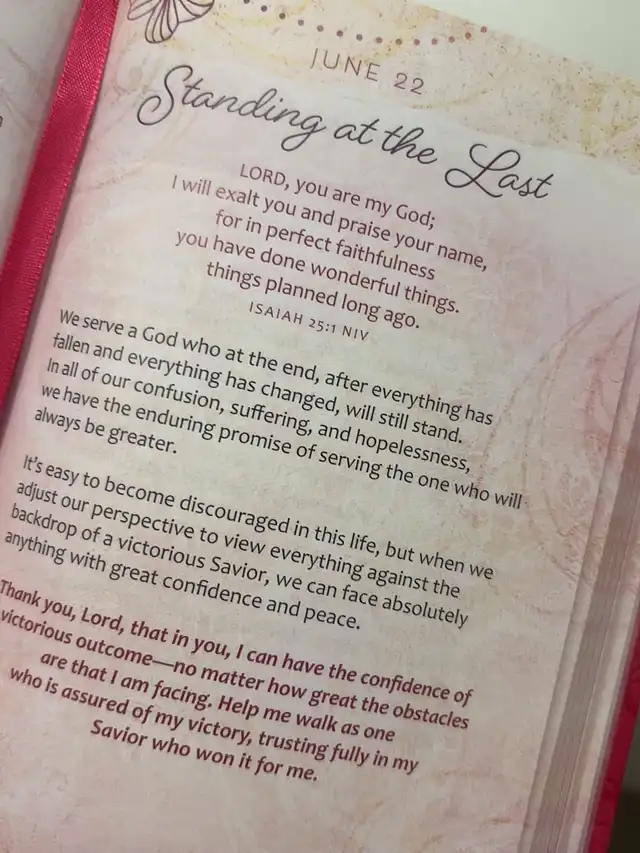 JUNE 22
Standing at the Last
LORD, you are my God;
I will exalt you and praise your name,
for in perfect faithfulness
you have done wonderful things.
things planned long ago.
ISAIAH 25:1 NIV
We serve a God who at the end, after everything has
fallen and everything has changed, will still stand.
In all of our confusion, suffering, and hopelessness,
we have the enduring promise of serving the one who will
always be greater.
It's easy to become discouraged in this life, but when we
adjust our perspective to view everything against the
backdrop of a victorious Savior, we can face absolutely
anything with great confidence and peace.
Thank you, Lord, that in you, I can have the confidence of
victorious outcome—no matter how great the obstacles
are that I am facing. Help me walk as one
who is assured of my victory, trusting fully in my
Savior who won it for me.